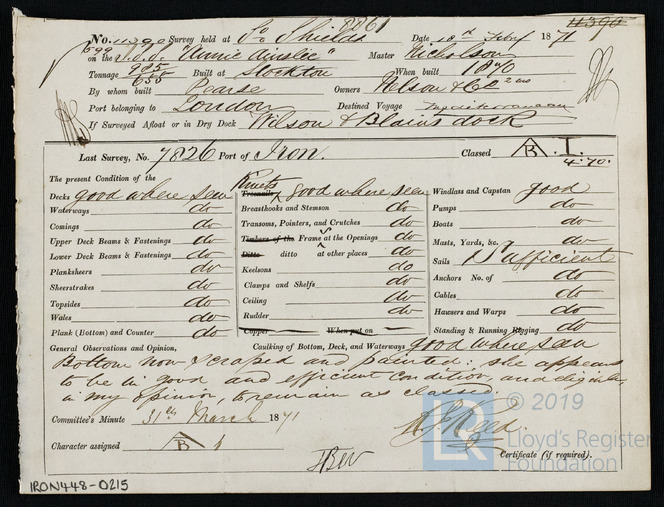 8861
11390
No. 11390 Survey held at So Shields Date 18th Feby 1871
599 on the S.S. "Annie Ainslie" Master Nicholson
Tonnage 985 655 Built at Stockton When built 1870
By whom built Pearse Owners Nelson & Co
Port belonging to London Destined Voyage Mediterranean
If Surveyed Afloat or in Dry Dock Wilson & Blain's dock
Last Survey, No. 7826 Port of Iron. Classed B 1. 4.70.
The present Condition of the
Decks good where seen
Waterways do
Comings do
Upper Deck Beams & Fastenings do
Lower Deck Beams & Fastenings do
Planksheers do
Sheerstrakes do
Topsides do
Wales do
Plank (Bottom) and Counter do
Rivets
Treenails good where seen
Breasthooks and Stemson do
Transoms, Pointers, and Crutches do
Timbers of the Frames at the Openings do
Ditto ditto at other places do
Keelsons do
Clamps and Shelfs do
Ceiling do
Rudder do
Copper When put on
Windlass and Capstan good
Pumps do
Boats do
Masts, Yards, &c. do
Sails Sufficient
Anchors No. of do
Cables do
Hawsers and Warps do
Standing & Running Rigging do
General Observations and Opinion, Caulking of Bottom, Deck, and Waterways good where seen
Bottom now scraped and painted: she appears
to be in good and efficient condition, and eligible,
in my opinion, to remain as classed.
Committee's Minute 31st March 1871
Character assigned B 1
Certificate (if required).
IRON448-0215
© 2019
LR
Lloyd's Register
Foundation